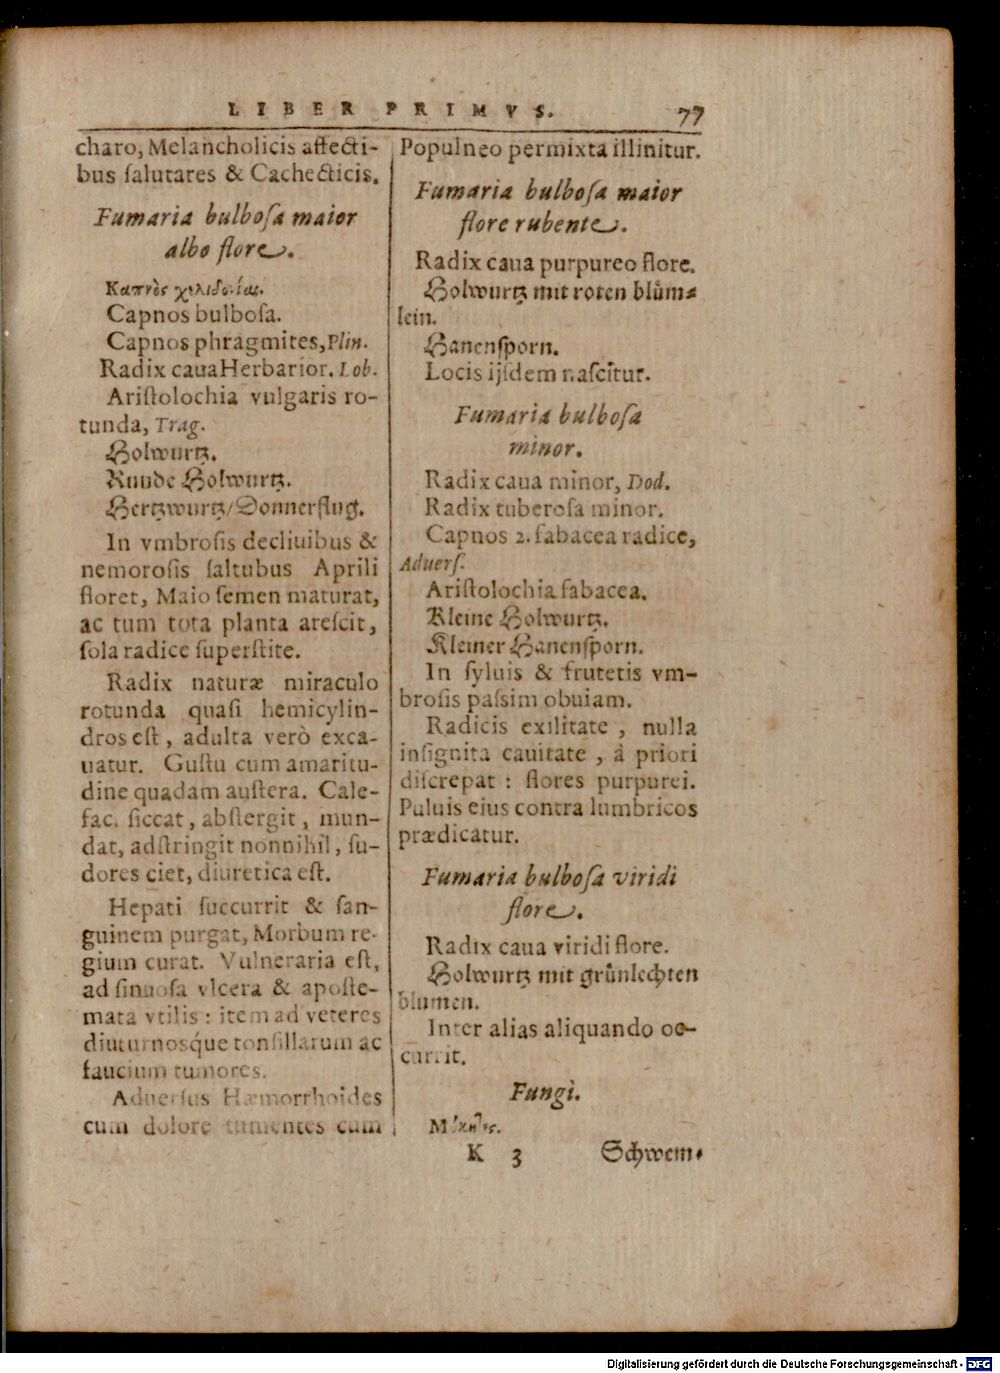 LIBER PRIMVS. 77
charo, Melancholicis affecti-
bus ſalutares & Cachecticis.
Fumaria bulboſa maior
albo flore.
Καπνὸς
Capnos bulboſa.
Capnos phragmites, Plin.
Radix caua Herbarior. Lob.
Ariſtolochia vulgaris ro-
tunda, Trag.
Holwurtz.
Runde Holwurtz.
Hertzwurtz/Donnerflug.
In vmbroſis decliuibus &
nemoroſis ſaltubus Aprili
floret, Maio ſemen maturat,
ac tum tota planta areſcit,
ſola radice ſuperſtite.
Radix naturæ miraculo
rotunda quaſi hemicylin-
dros eſt, adulta verò exca-
uatur. Guſtu cum amaritu-
dine quadam auſtera. Cale-
fac. ſiccat, abſtergit, mun-
dat, adſtringit nonnihil, ſu-
dores ciet, diuretica eſt.
Hepati ſuccurrit & ſan-
guinem purgat, Morbum re-
gium curat. Vulneraria eſt,
ad ſinuoſa vlcera & apoſte-
mata vtilis: item ad veteres
diuturnosque tonſillarum ac
faucium tumores.
Aduerſus Hæmorrhoides
cum dolore tumentes cum
Populneo permixta illinitur.
Fumaria bulboſa maior
flore rubente.
Radix caua purpureo flore.
Holwurtz mit roten blům-
lein.
Hanenſporn.
Locis ijſdem naſcitur.
Fumaria bulboſa
minor.
Radix caua minor, Dod.
Radix tuberoſa minor.
Capnos 2. fabacea radice,
Aduerſ.
Ariſtolochia fabacea.
Kleine Holwurtz.
Kleiner Hanenſporn.
In ſyluis & frutetis vm-
broſis paſsim obuiam.
Radicis exilitate, nulla
inſignita cauitate, à priori
diſcrepat: flores purpurei.
Puluis eius contra lumbricos
prædicatur.
Fumaria bulboſa viridi
flore.
Radix caua viridi flore.
Holwurtz mit grůnlechten
blumen.
Inter alias aliquando oc-
currit.
Fungi.
K 3 Schwem-
Digitalisierung gefördert durch die Deutsche Forschungsgemeinschaft - DFG